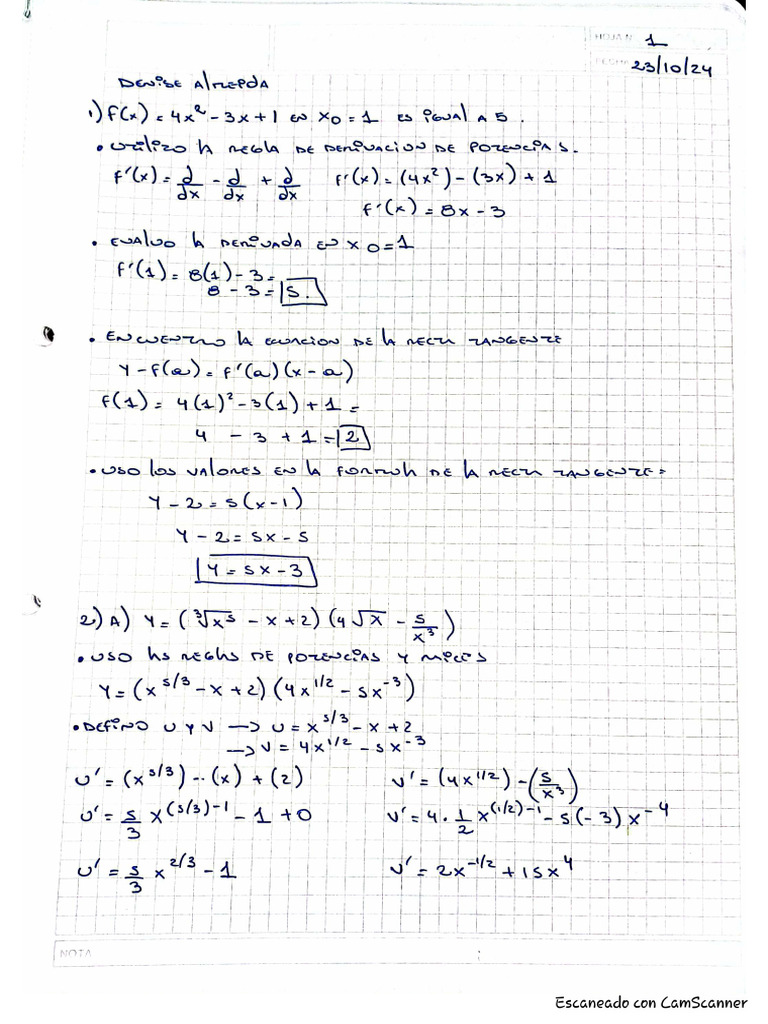 HOJA N° 1
FECHA 23/10/24
DENISE AlMEIDA
1) f(x) = 4x² - 3x + 1 en x0 = 1 es igual a 5.
• Utilizo la regla de derivacion de potencias.
f'(x) = d/dx - d/dx + d/dx f'(x) = (4x²) - (3x) + 1
f'(x) = 8x - 3
• Evaluo la derivada en x0 = 1
f'(1) = 8(1) - 3 =
8 - 3 = 5.
• Encuentro la ecuacion de la recta tangente
y - f(a) = f'(a)(x - a)
f(1) = 4(1)² - 3(1) + 1 =
4 - 3 + 1 = 2
• Uso los valores en la formula de la recta tangente =
y - 2 = 5(x - 1)
y - 2 = 5x - 5
y = 5x - 3
2) A) y = (∛x⁵ - x + 2) (4√x - 5/x³)
• Uso las reglas de potencias y raices
y = (x^5/3 - x + 2) (4x^1/2 - 5x^-3)
• Defino U y V → U = x^5/3 - x + 2
→ V = 4x^1/2 - 5x^-3
U' = (x^5/3) - (x) + (2) V' = (4x^1/2) - (5/x³)
U' = 5/3 x^(5/3)-1 - 1 + 0 V' = 4 · 1/2 x^(1/2)-1 - 5(-3)x^-4
U' = 5/3 x^2/3 - 1 V' = 2x^-1/2 + 15x^4
NOTA
Escaneado con CamScanner